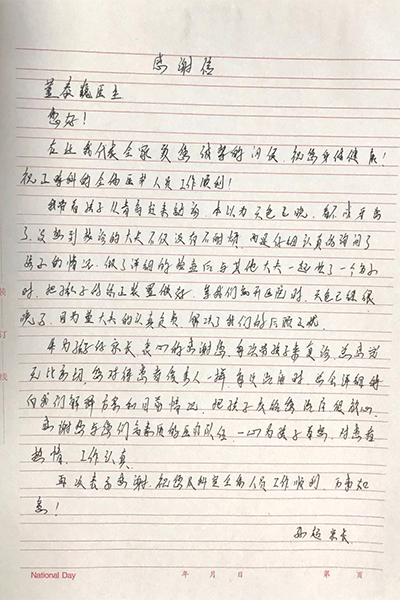 感谢信
董春魏医生
您好！
在此我代表全家向您诚挚的问候，祝您身体健康！
祝正畸科的全体医护人员工作顺利！
我带着孩子从青岛赶来就诊，本以为天色已晚，
了，没想到接诊的大夫不仅没有不耐烦，而是仔细认真的询问了
孩子的情况，做了详细的检查后与其他大夫一起
时，把孩子的矫正装置做好，当我们离开医院时，天色已经很
晚了，因为董大夫的认真负责，解决了我们的后顾之忧。
作为孩子家长，衷心的感谢您，每次带孩子来复诊
无比，您对待患者像亲人一样，每次治疗时，总会详细的
向我们解释方案和日常情况，把孩子交给您治疗很放心。
感谢您与您们高素质的医疗队伍，一心为孩子着想，对患者
热情，工作认真。
再次表示感谢，祝您及科室全体人员工作顺利，万事如
意！
家长
装
订
线
National Day
年 月 日
第 页